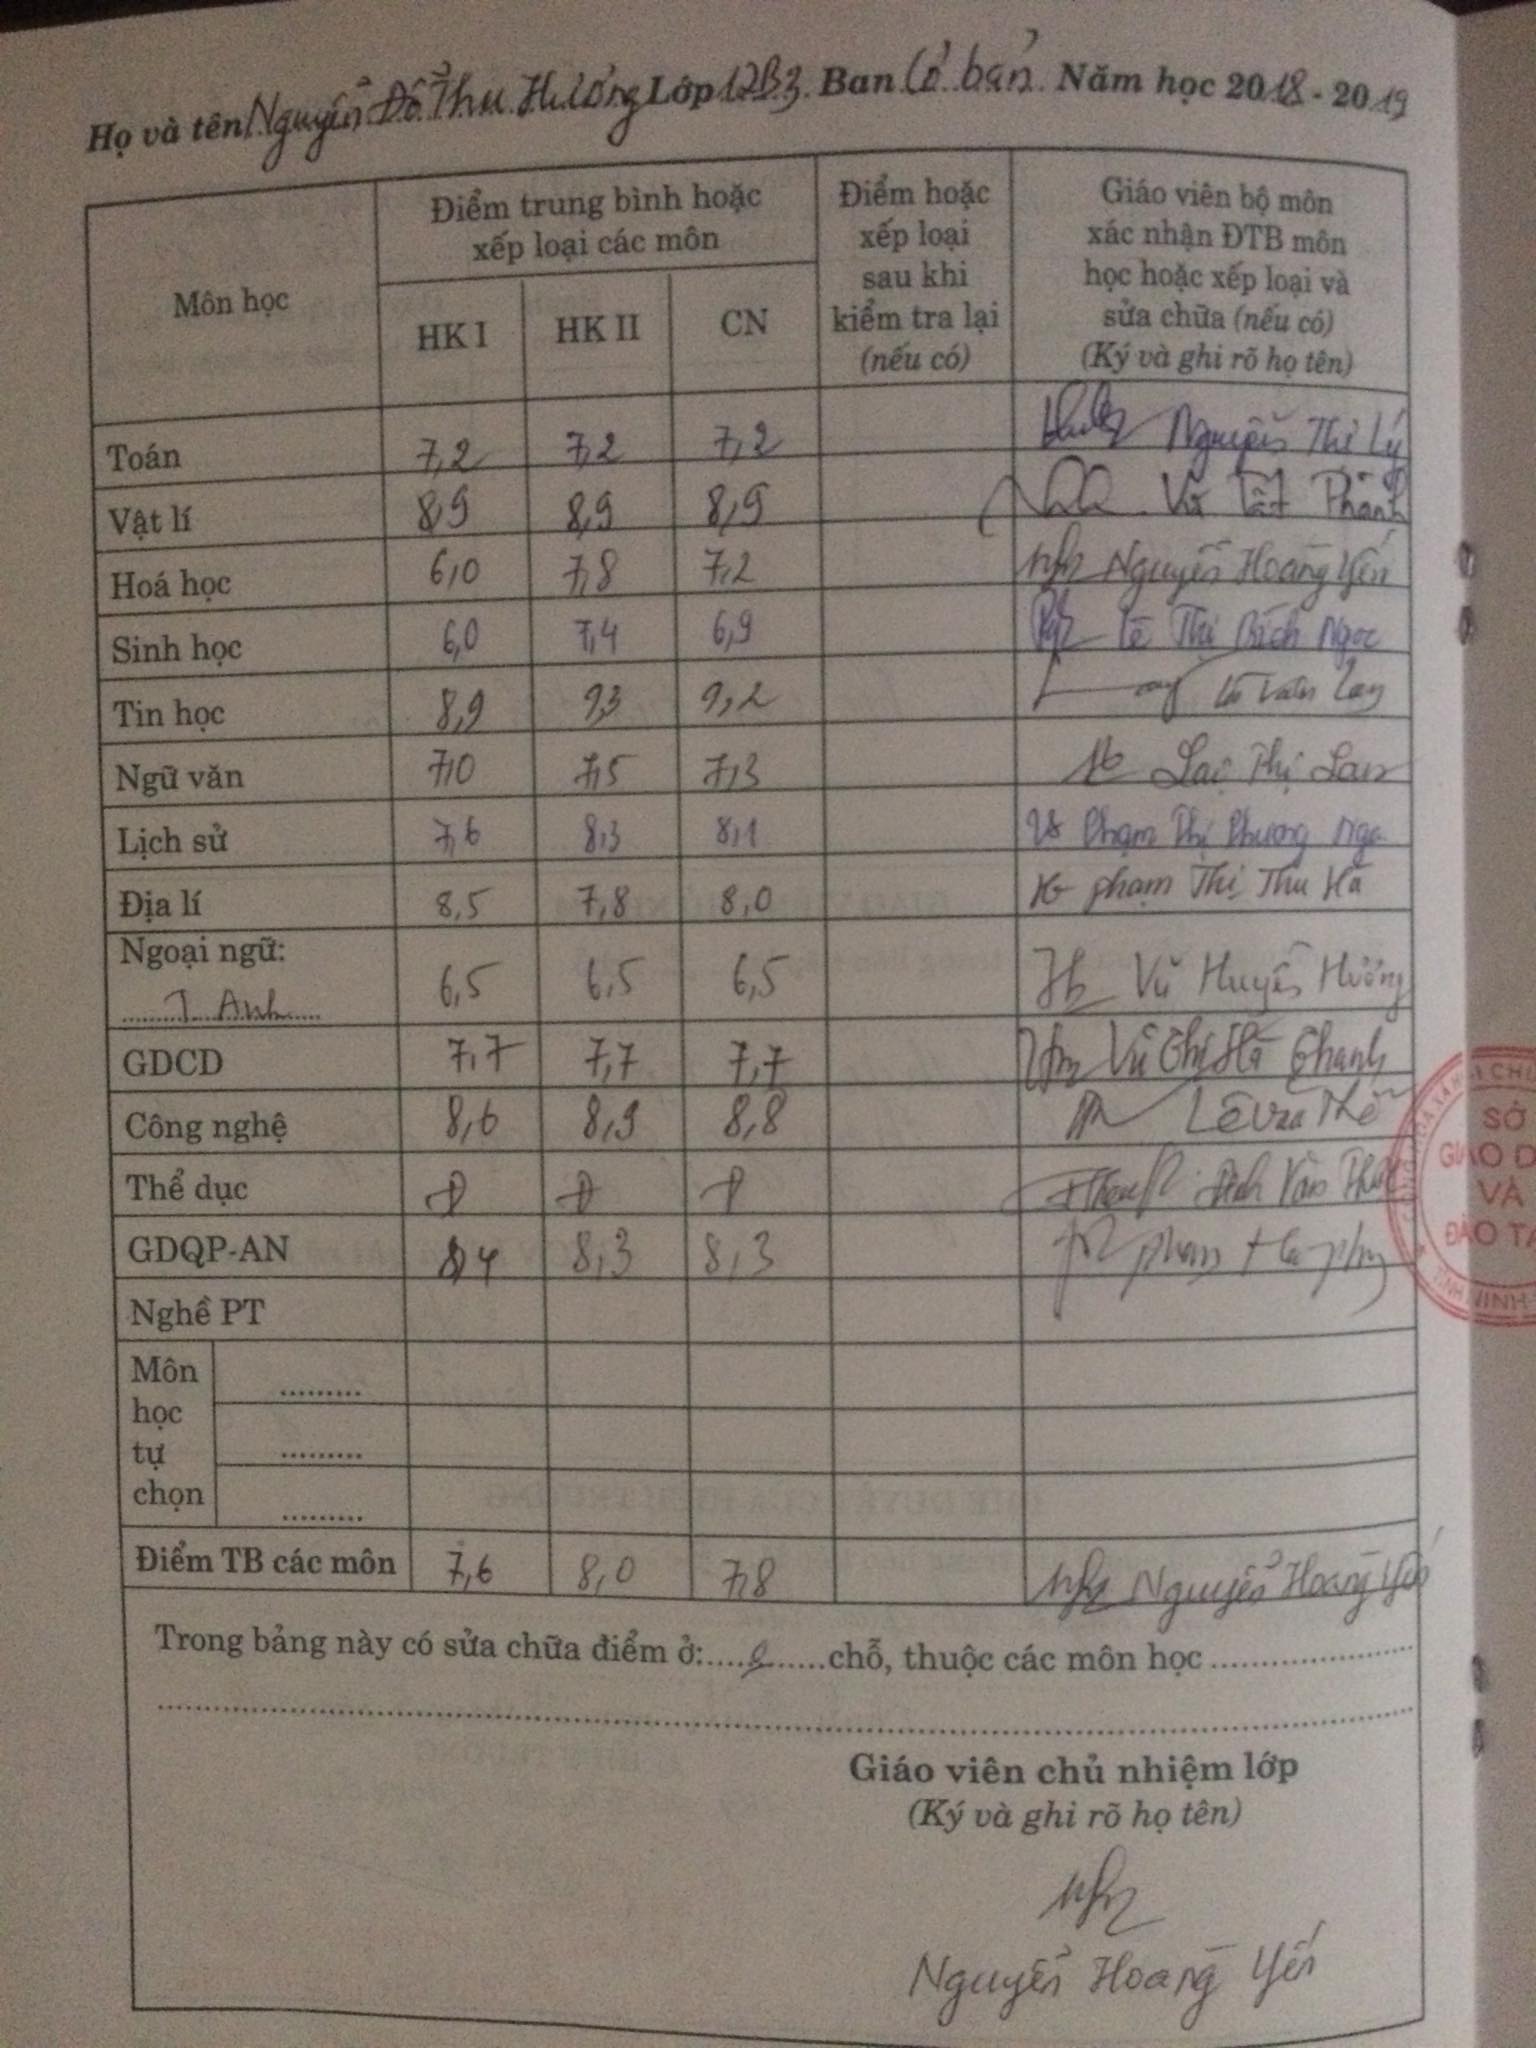 Họ và tên Nguyễn Đỗ Thu Hương Lớp 12B3 Ban Cơ bản Năm học 2018 - 2019
Môn học
Điểm trung bình hoặc
xếp loại các môn
HK I HK II CN
Điểm hoặc
xếp loại
sau khi
kiểm tra lại
(nếu có)
Giáo viên bộ môn
xác nhận ĐTB môn
học hoặc xếp loại và
sửa chữa (nếu có)
(Ký và ghi rõ họ tên)
Toán 7,2 7,2 7,2 Nguyễn Thị Lý
Vật lí 8,9 8,9 8,9 Vũ Tất Thành
Hoá học 6,0 7,8 7,2 Nguyễn Hoàng Yến
Sinh học 6,0 7,4 6,9 Lê Thị Bích Ngọc
Tin học 8,9 9,3 9,2
Ngữ văn 7,0 7,5 7,3 Lại Thị Lan
Lịch sử 7,6 8,3 8,1 Phạm Thị Phương Nga
Địa lí 8,5 7,8 8,0 Phạm Thị Thu Hà
Ngoại ngữ:
T. Anh 6,5 6,5 6,5 Vũ Huyền Hương
GDCD 7,7 7,7 7,7 Vũ Thị Hà Thanh
Công nghệ 8,6 8,9 8,8 Lê Văn Thế
Thể dục Đ Đ Đ
GDQP-AN 8,4 8,3 8,3
Nghề PT
Môn
học
tự
chọn
.........
.........
.........
Điểm TB các môn 7,6 8,0 7,8 Nguyễn Hoàng Yến
Trong bảng này có sửa chữa điểm ở:....0.....chỗ, thuộc các môn học
Giáo viên chủ nhiệm lớp
(Ký và ghi rõ họ tên)
Nguyễn Hoàng Yến
SỞ
VÀ